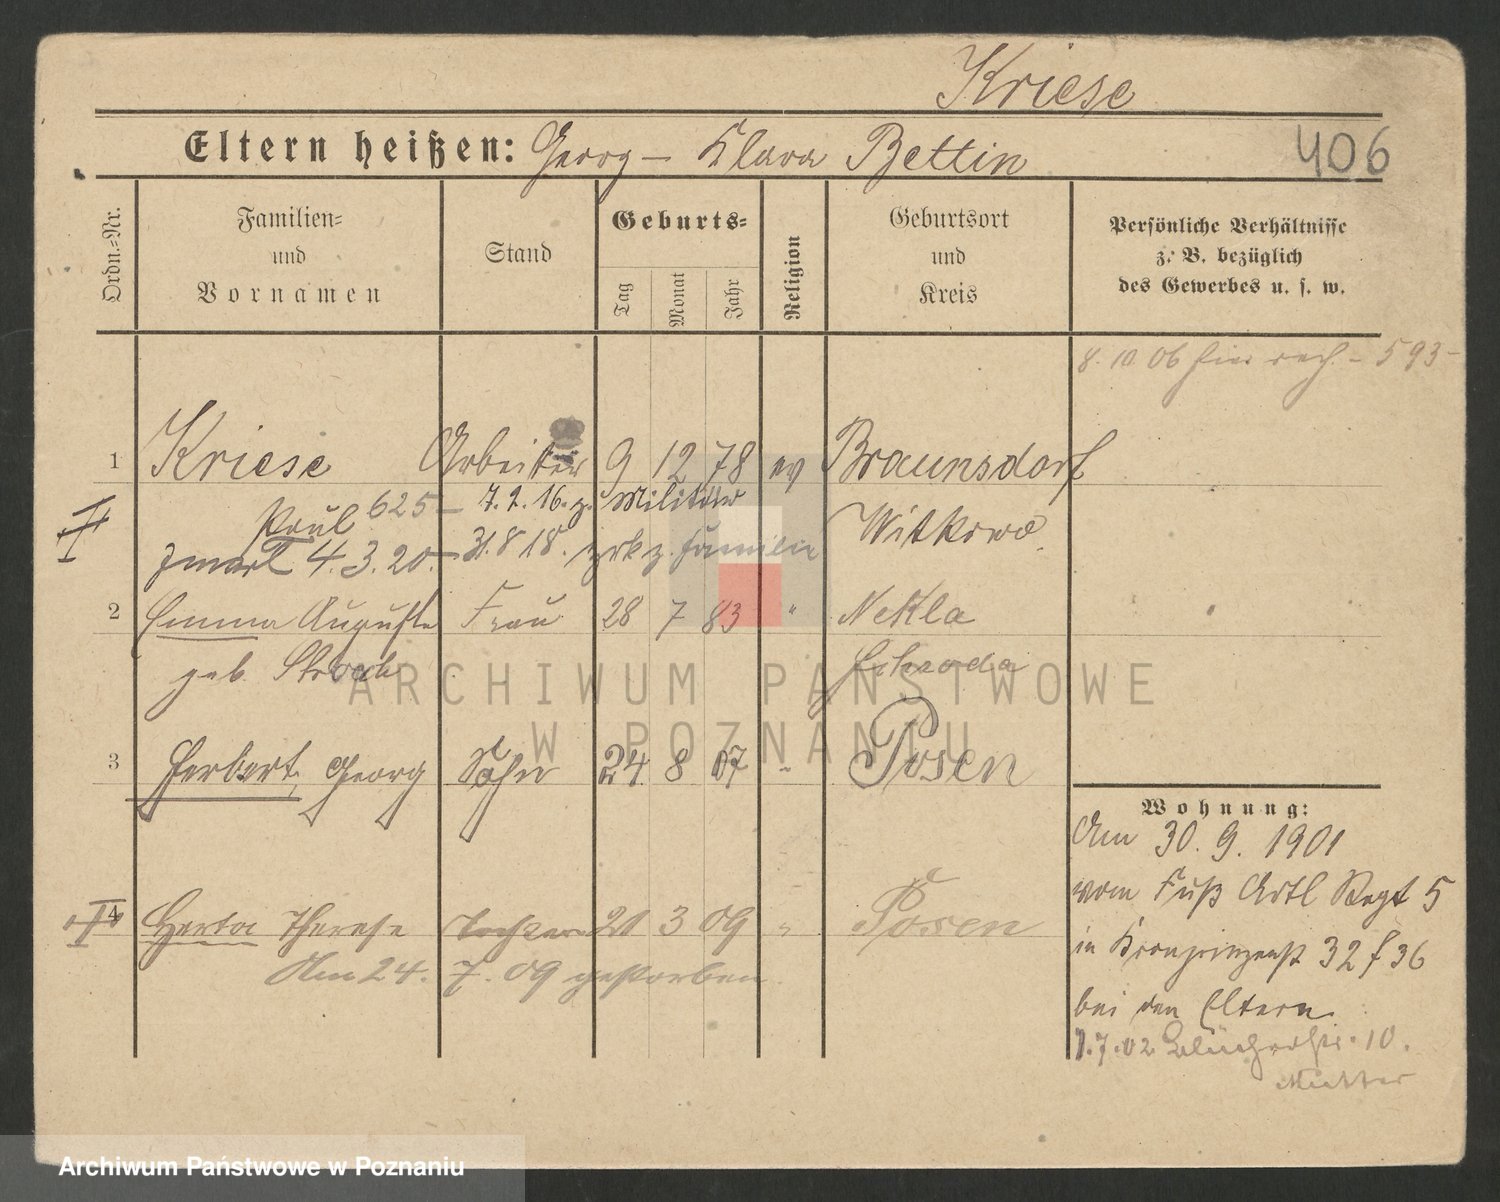 Kriese
Eltern heißen: Georg – Klara Bettin
406
Ordn.=Nr.
Familien=
und
Vornamen
Stand
Geburts=
Tag
Monat
Jahr
Religion
Geburtsort
und
Kreis
Persönliche Verhältnisse
z. B. bezüglich
des Gewerbes u. s. w.
8. 10 06 hier – 593 –
1 Kriese Arbeiter 9 12 78 ev Braunsdorf
Paul 625 – 7.2.16. z. Militär Witkowo
zmarł 4.3.20. – 31.8 18. zrk z. Familie
2 Emma Auguste Frau 28 7 83 " Nekla
geb. Schroda
3 Herbert, Georg Sohn 24 8 07 " Posen
4 Herta Therese Tochter 21 3 09 " Posen
Am 24. 7. 09 gestorben
Wohnung:
Am 30. 9. 1901
vom Fuß Artl Regt 5
in Kronprinzenst 32 f 36
bei den Eltern
1.7.02 Blücherstr. 10.
Mutter
ARCHIWUM PAŃSTWOWE
W POZNANIU
Archiwum Państwowe w Poznaniu